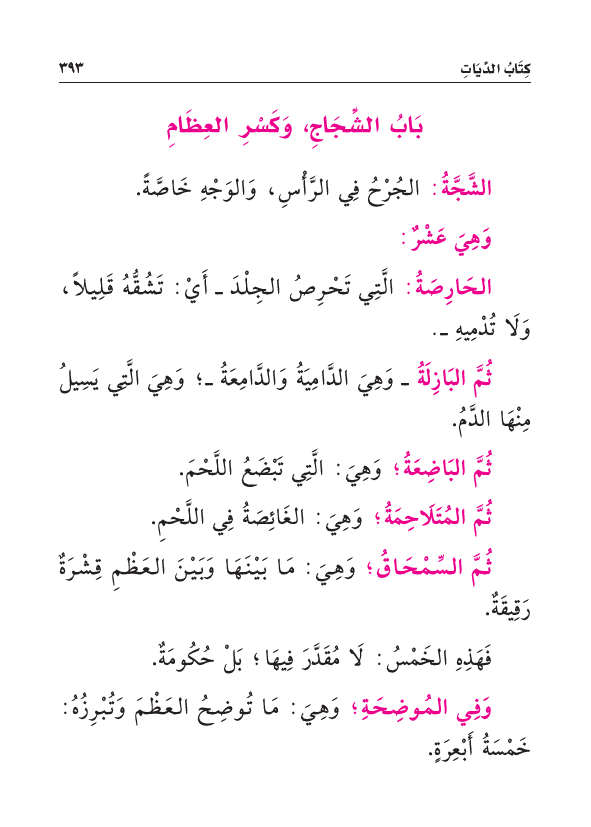 كِتَابُ الدِّيَاتِ ٣٩٣
بَابُ الشِّجَاجِ، وَكَسْرِ العِظَامِ
الشَّجَّةُ: الجُرْحُ فِي الرَّأْسِ، وَالوَجْهِ خَاصَّةً.
وَهِيَ عَشْرٌ:
الحَارِصَةُ: الَّتِي تَحْرِصُ الجِلْدَ ـ أَيْ: تَشُقُّهُ قَلِيلاً،
وَلَا تُدْمِيهِ ـ.
ثُمَّ البَازِلَةُ ـ وَهِيَ الدَّامِيَةُ وَالدَّامِعَةُ ـ؛ وَهِيَ الَّتِي يَسِيلُ
مِنْهَا الدَّمُ.
ثُمَّ البَاضِعَةُ؛ وَهِيَ: الَّتِي تَبْضَعُ اللَّحْمَ.
ثُمَّ المُتَلَاحِمَةُ؛ وَهِيَ: الغَائِصَةُ فِي اللَّحْمِ.
ثُمَّ السِّمْحَاقُ؛ وَهِيَ: مَا بَيْنَهَا وَبَيْنَ العَظْمِ قِشْرَةٌ
رَقِيقَةٌ.
فَهَذِهِ الخَمْسُ: لَا مُقَدَّرَ فِيهَا؛ بَلْ حُكُومَةٌ.
وَفِي المُوضِحَةِ؛ وَهِيَ: مَا تُوضِحُ العَظْمَ وَتُبْرِزُهُ:
خَمْسَةُ أَبْعِرَةٍ.